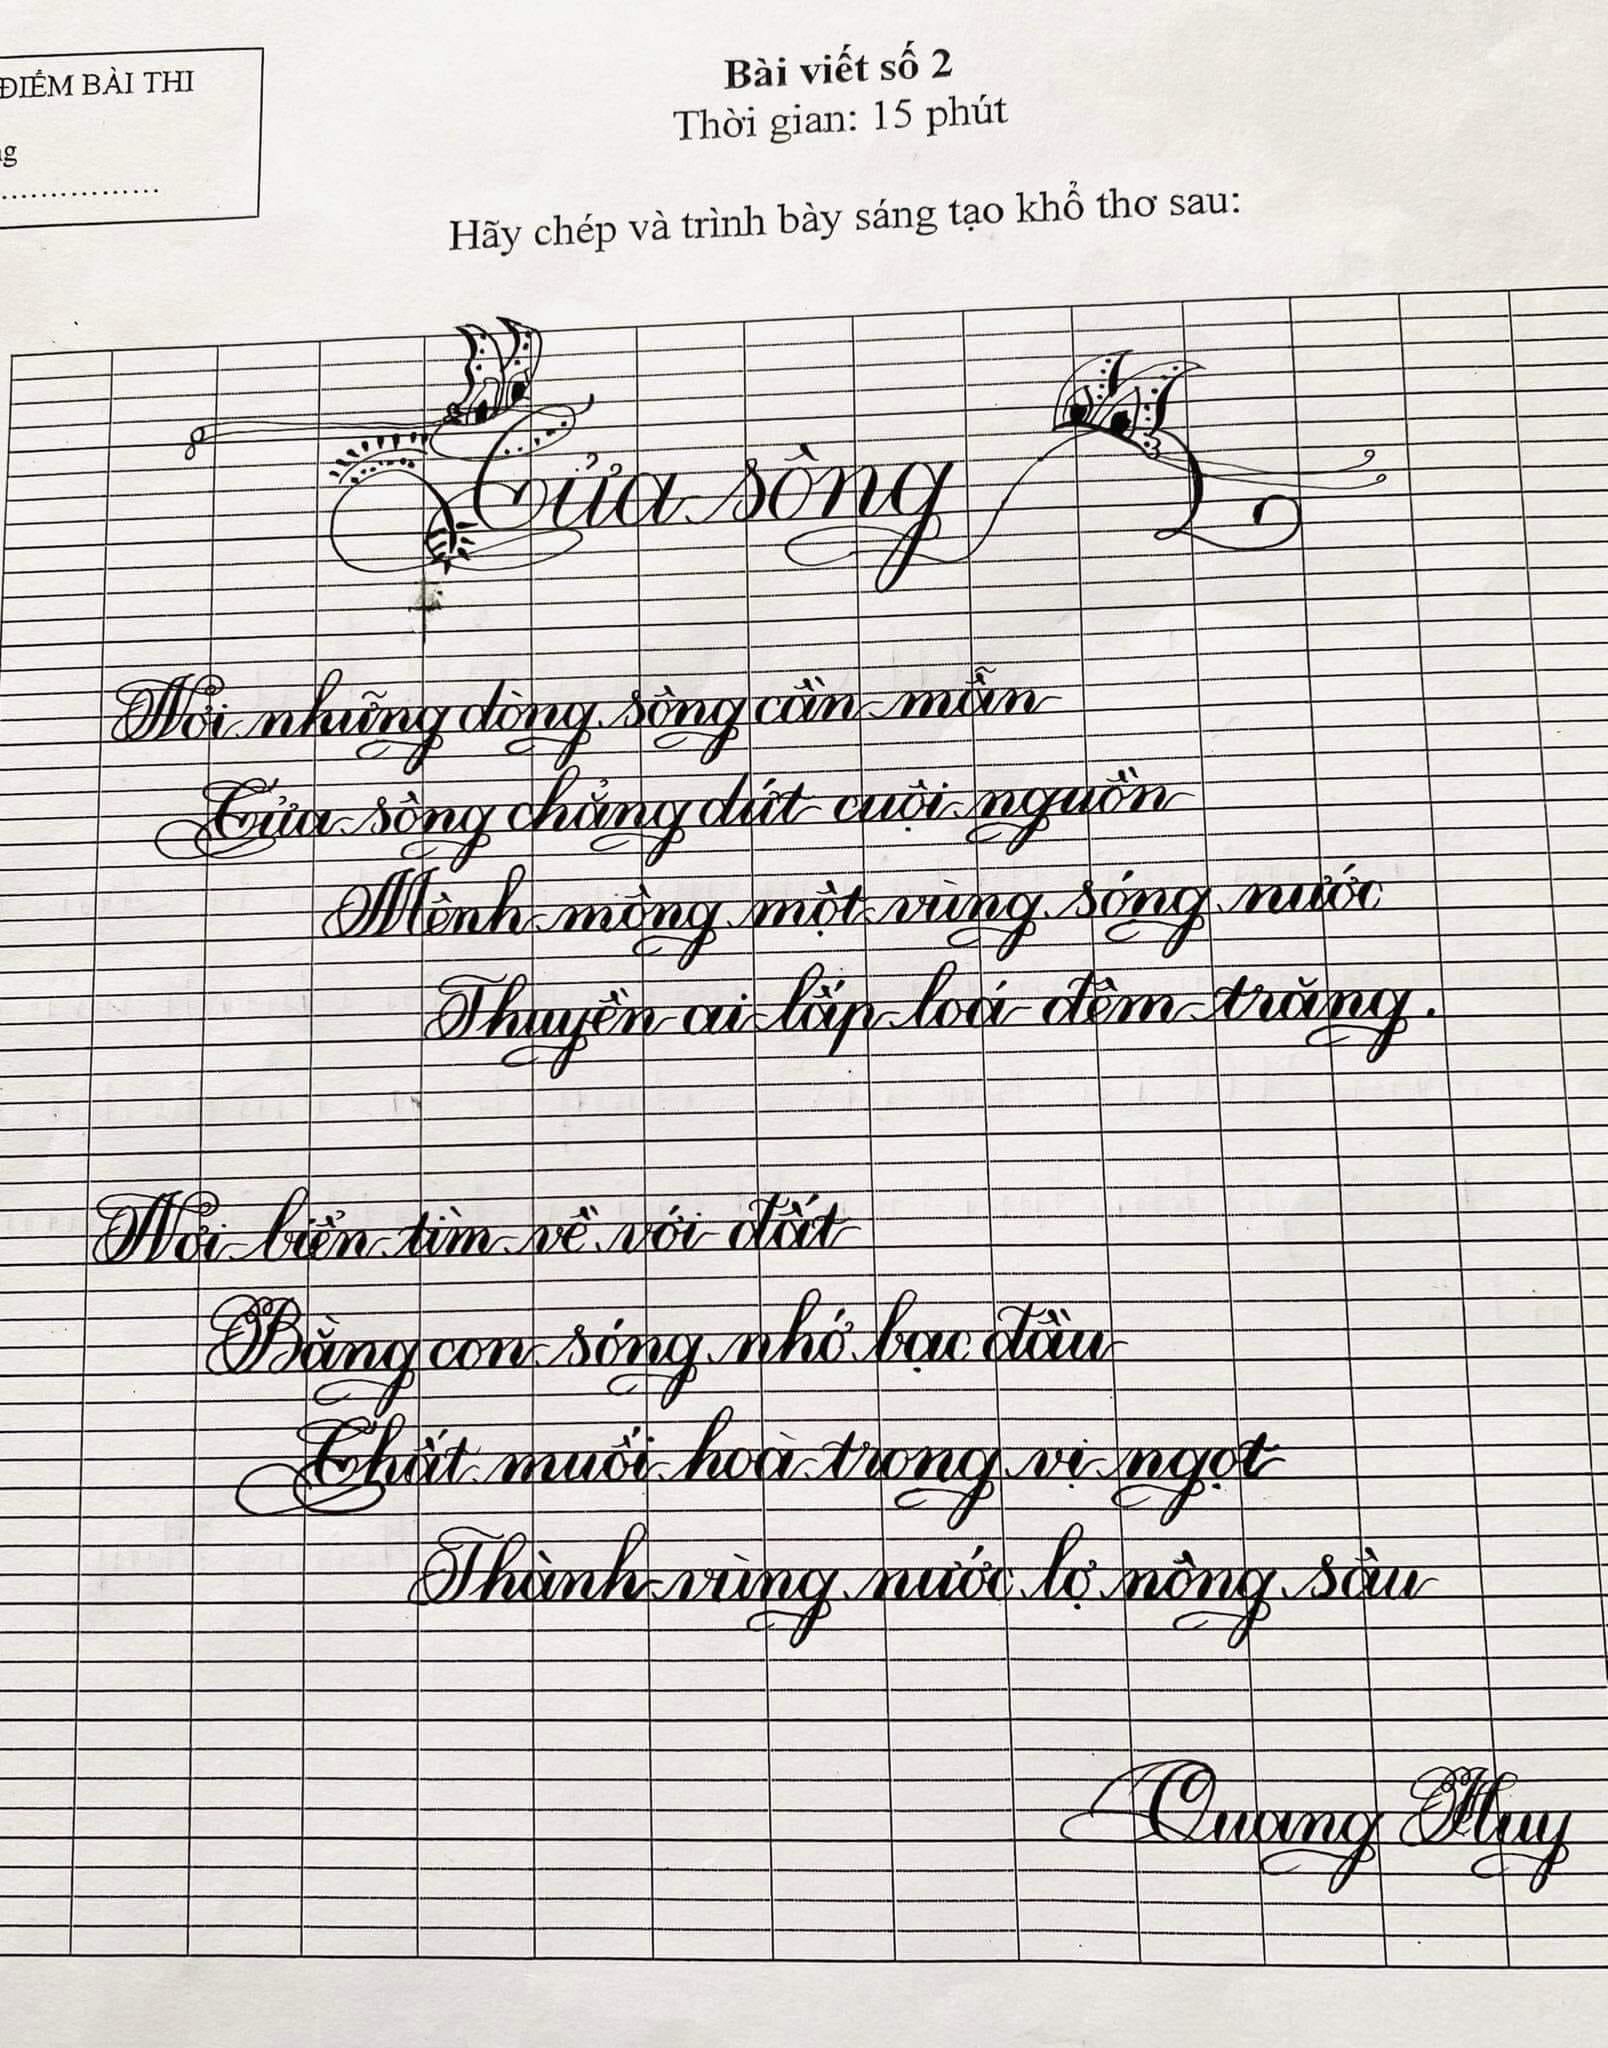 ĐIỂM BÀI THI
Bài viết số 2
Thời gian: 15 phút
Hãy chép và trình bày sáng tạo khổ thơ sau:
Cửa sông
Nơi những dòng sông cần mẫn
Cửa sông chẳng dứt cuội nguồn
Mênh mông một vùng sóng nước
Thuyền ai lấp loá đêm trăng.
Nơi biển tìm về với đất
Bằng con sóng nhớ bạc đầu
Chất muối hoà trong vị ngọt
Thành vùng nước lợ nông sâu
Quang Huy